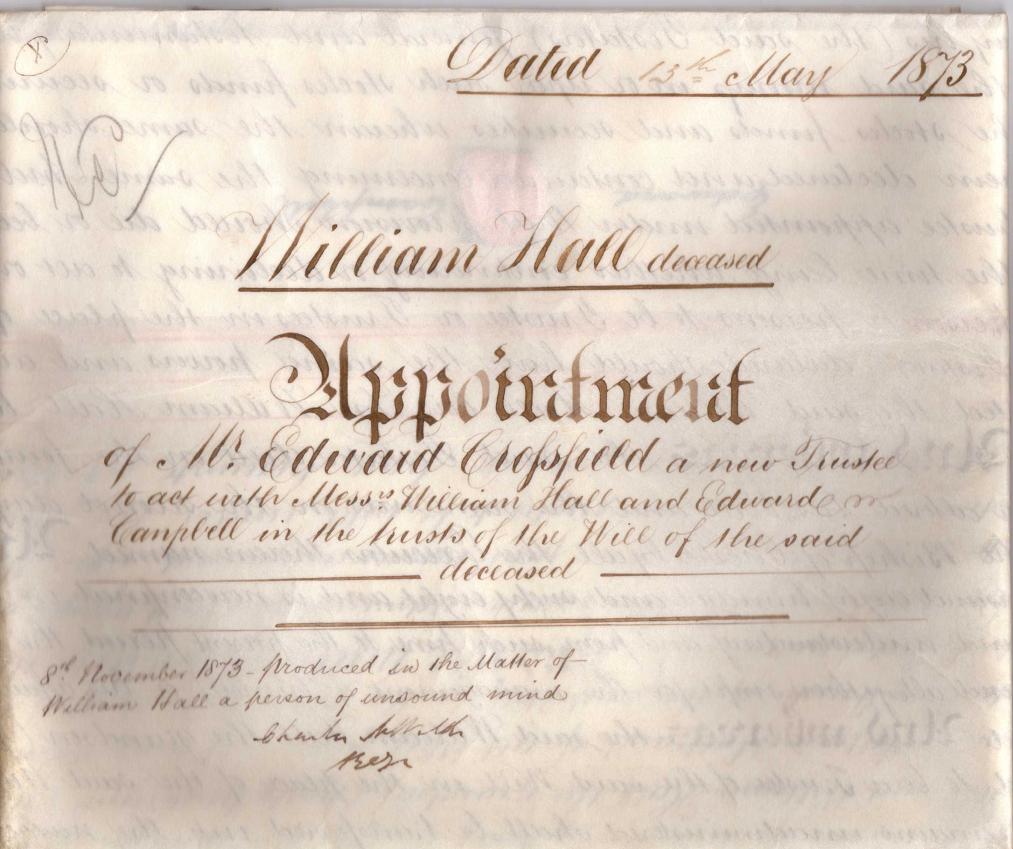 Dated 13th May 1873
William Hall deceased
Appointment
of Mr. Edward Crossfield a new Trustee
to act with Messrs William Hall and Edward
Campbell in the trusts of the Will of the said
deceased
8th November 1873 - produced in the Matter of
William Hall a person of unsound mind